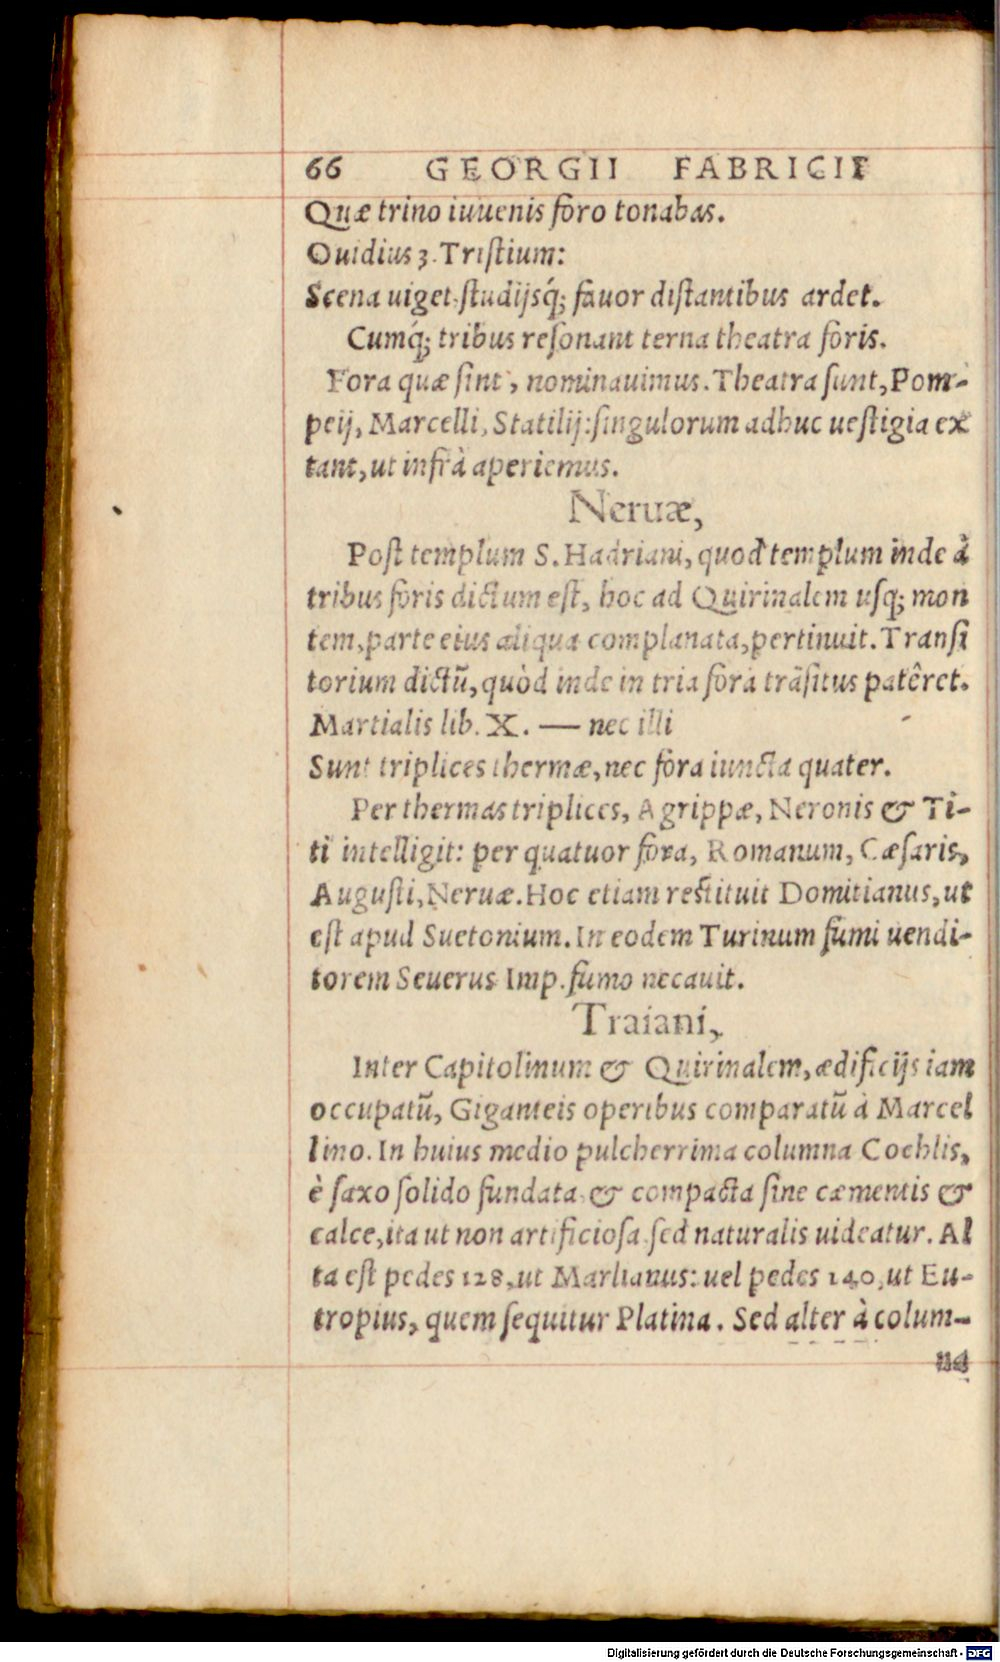 66 GEORGII FABRICII
Quæ trino iuuenis foro tonabas.
Ouidius 3. Tristium:
Scena uiget studijsq́; fauor distantibus ardet.
Cumq́; tribus resonant terna theatra foris.
Fora quæ sint, nominauimus. Theatra sunt, Pom-
peij, Marcelli, Statilij: singulorum adhuc uestigia ex
tant, ut infrà aperiemus.
Neruæ,
Post templum S. Hadriani, quod templum inde à
tribus foris dictum est, hoc ad Quirinalem usq; mon
tem, parte eius aliqua complanata, pertinuit. Transi
torium dictũ, quòd inde in tria fora trãsitus patêret.
Martialis lib. X. — nec illi
Sunt triplices thermæ, nec fora iuncta quater.
Per thermas triplices, Agrippæ, Neronis & Ti-
ti intelligit: per quatuor fora, Romanum, Cæsaris,
Augusti, Neruæ. Hoc etiam restituit Domitianus, ut
est apud Suetonium. In eodem Turinum fumi uendi-
torem Seuerus Imp. fumo necauit.
Traiani,
Inter Capitolinum & Quirinalem, ædificijs iam
occupatũ, Giganteis operibus comparatũ à Marcel
lino. In huius medio pulcherrima columna Cochlis,
è saxo solido fundata & compacta sine cæmentis &
calce, ita ut non artificiosa sed naturalis uideatur. Al
ta est pedes 128, ut Marlianus: uel pedes 140, ut Eu-
tropius, quem sequitur Platina. Sed alter à colum-
na
Digitalisierung gefördert durch die Deutsche Forschungsgemeinschaft - DFG